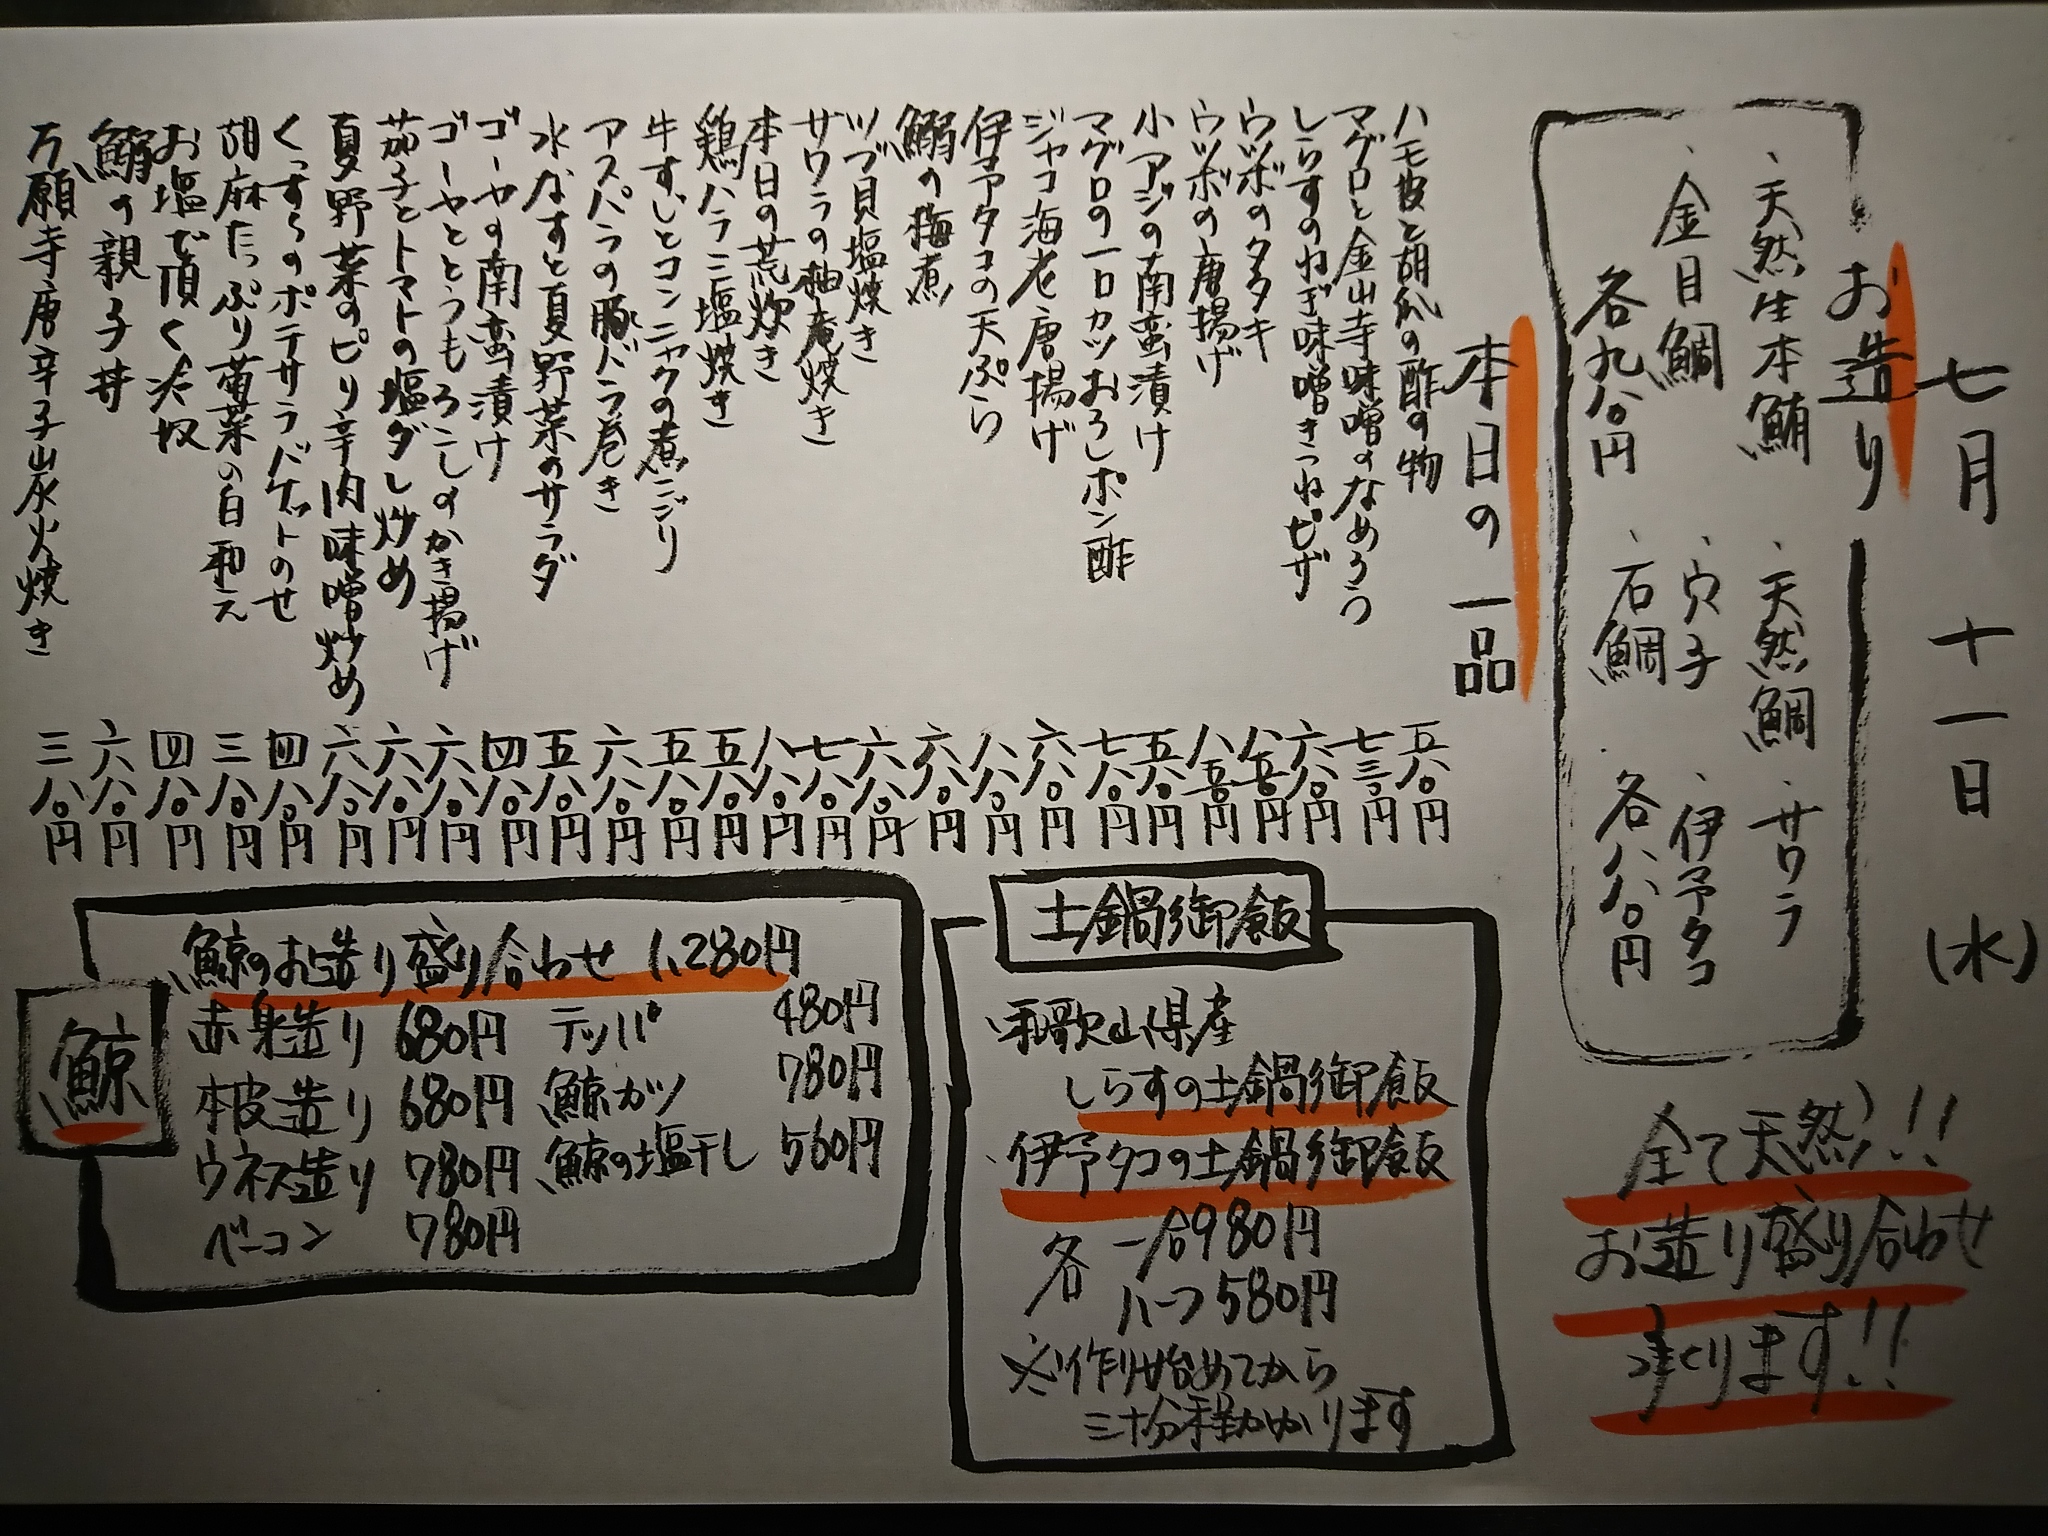 七月 十一日 (水)
お造り
・天然生本鮪 ・天然鯛 ・サワラ
・金目鯛 ・穴子 ・伊予タコ
各九八〇円 ・石鯛 各八八〇円
全て天然!!
お造り盛り合わせ
承ります!!
本日の一品
ハモ皮と胡瓜の酢の物 五八〇円
マグロと金山寺味噌のなめろう 七三〇円
しらすのねぎ味噌きつねピザ 六八〇円
ウツボのタタキ 八五〇円
ウツボの唐揚げ 八五〇円
小アジの南蛮漬け 五八〇円
マグロの一口カツおろしポン酢 七八〇円
ジャコ海老唐揚げ 六八〇円
伊予タコの天ぷら 八八〇円
鰯の梅煮 六八〇円
ツブ貝塩焼き 六八〇円
サワラの柚庵焼き 七八〇円
本日の荒炊き 八八〇円
鶏ハラミ塩焼き 五八〇円
牛すじとコンニャクの煮こごり 五八〇円
アスパラの豚バラ巻き 六八〇円
水なすと夏野菜のサラダ 五八〇円
ゴーヤの南蛮漬け 四八〇円
ゴーヤととうもろこしのかき揚げ 六八〇円
茄子とトマトの塩ダレ炒め 六八〇円
夏野菜のピリ辛肉味噌炒め 六八〇円
くっすらのポテサラバゲットのせ 四八〇円
胡麻たっぷり菊菜の白和え 三八〇円
お塩で頂く 四八〇円
鰯の親子丼 六八〇円
万願寺唐辛子炭火焼き 三八〇円
土鍋御飯
・和歌山県産
しらすの土鍋御飯
・伊予タコの土鍋御飯
各 一合980円
ハーフ580円
※作り始めてから
三十分程かかります
鯨
鯨のお造り盛り合わせ 1,280円
赤身造り 680円 テッパ 480円
本皮造り 680円 鯨カツ 780円
ウネス造り 780円 鯨の塩干し 560円
ベーコン 780円